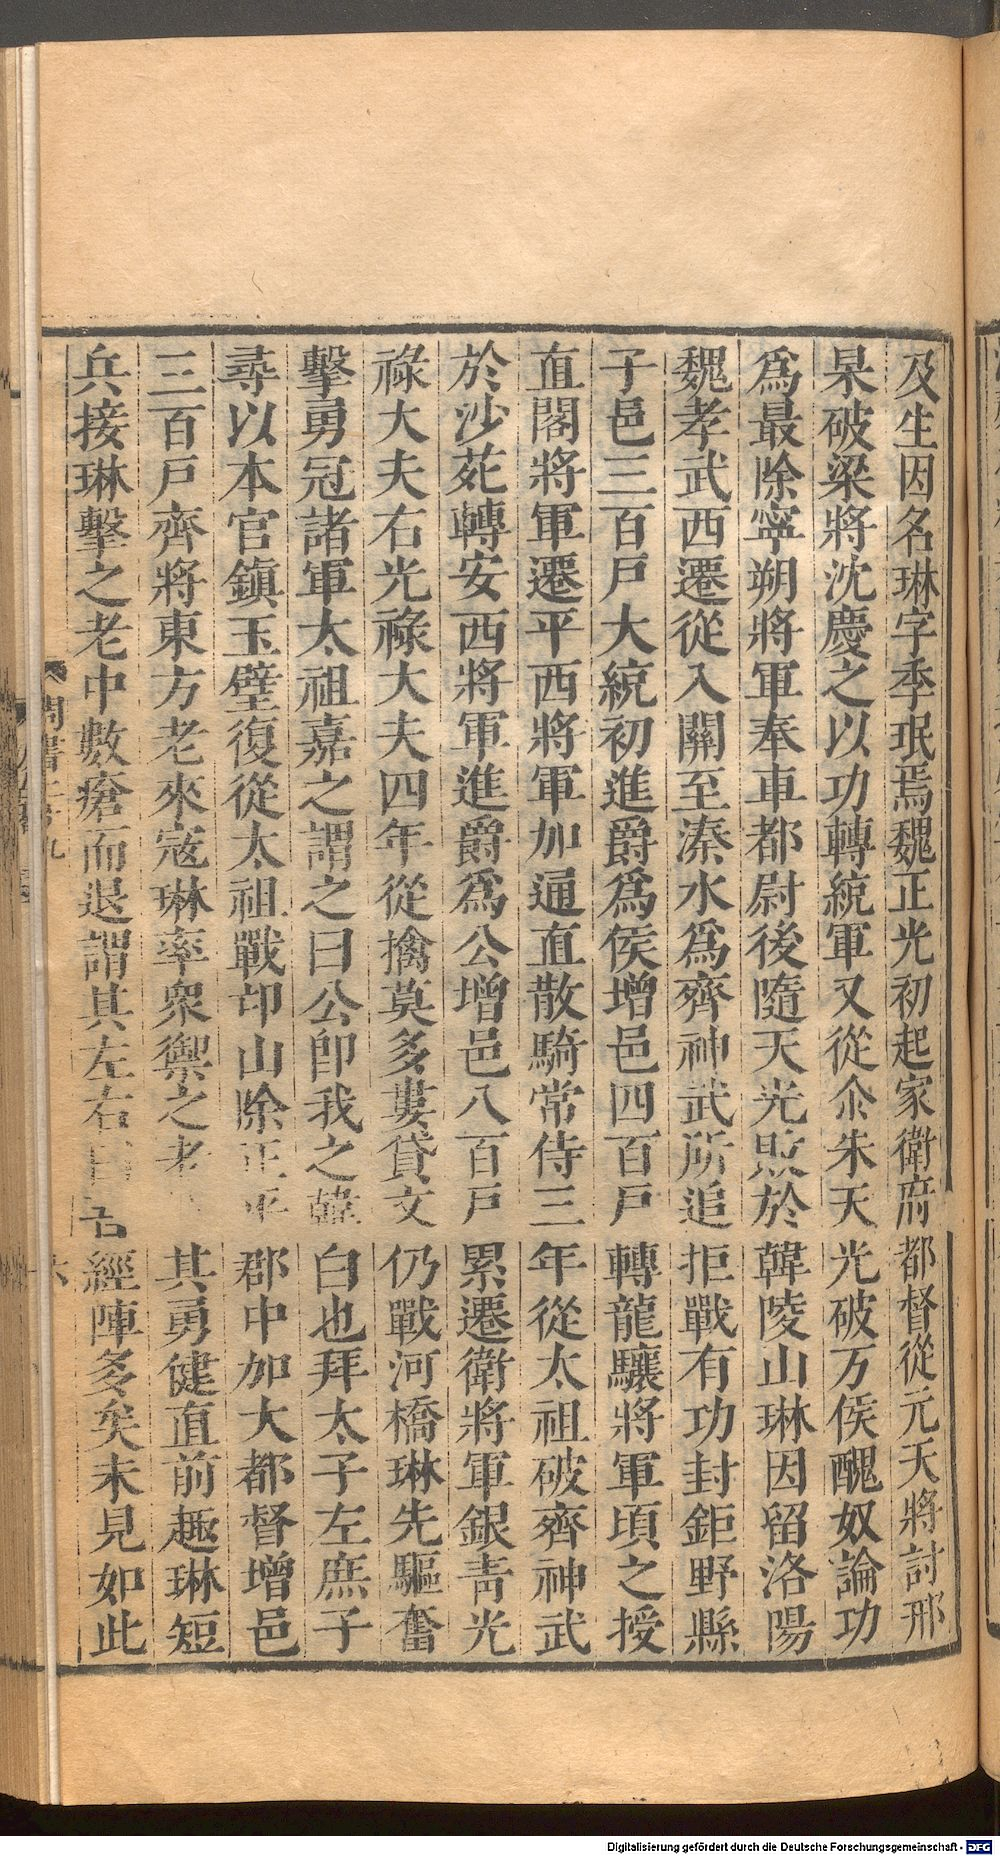 及生因名琳字季珉焉魏正光初起家衛府都督從元天將討邢
杲破梁將沈慶之以功轉統軍又從尒朱天光破万俟醜奴論功
爲最除寧朔將軍奉車都尉後隨天光敗於韓陵山琳因留洛陽
魏孝武西遷從入關至溱水爲齊神武所追拒戰有功封鉅野縣
子邑三百戸大統初進爵爲侯增邑四百戸轉龍驤將軍頃之授
直閣將軍遷平西將軍加通直散騎常侍三年從太祖破齊神武
於沙苑轉安西將軍進爵爲公增邑八百戸累遷衛將軍銀青光
祿大夫右光祿大夫四年從擒莫多婁貸文仍戰河橋琳先驅奮
擊勇冠諸軍太祖嘉之謂之曰公卽我之韓白也拜太子左庶子
尋以本官鎮玉壁復從太祖戰卭山除正平郡中加大都督增邑
三百戸齊將東方老來寇琳率衆禦之老其勇健直前趣琳短
兵接琳擊之老中數瘡而退謂其左右曰吾經陣多矣未見如此
周書二十九
六
Digitalisierung gefördert durch die Deutsche Forschungsgemeinschaft - DFG